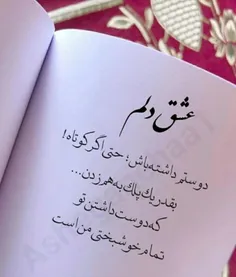 عشق دلم
دوستم داشته باش؛ حتی اگر کوتاه!
بقدر یک پلک به هم زدن...
که دوست داشتن تو
تمام خوشبختی من است